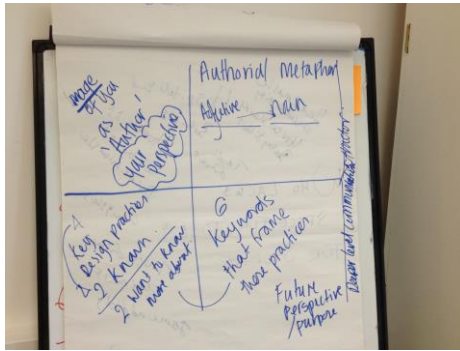 Image
of you
'as
Author'
Your
Perspective
Authorial Metaphor
Adjective Noun
4 Key
Design Practices
2 Known
2 Want to Know
more about
6
Keywords
that frame
these practices
Future
perspective
/purpose